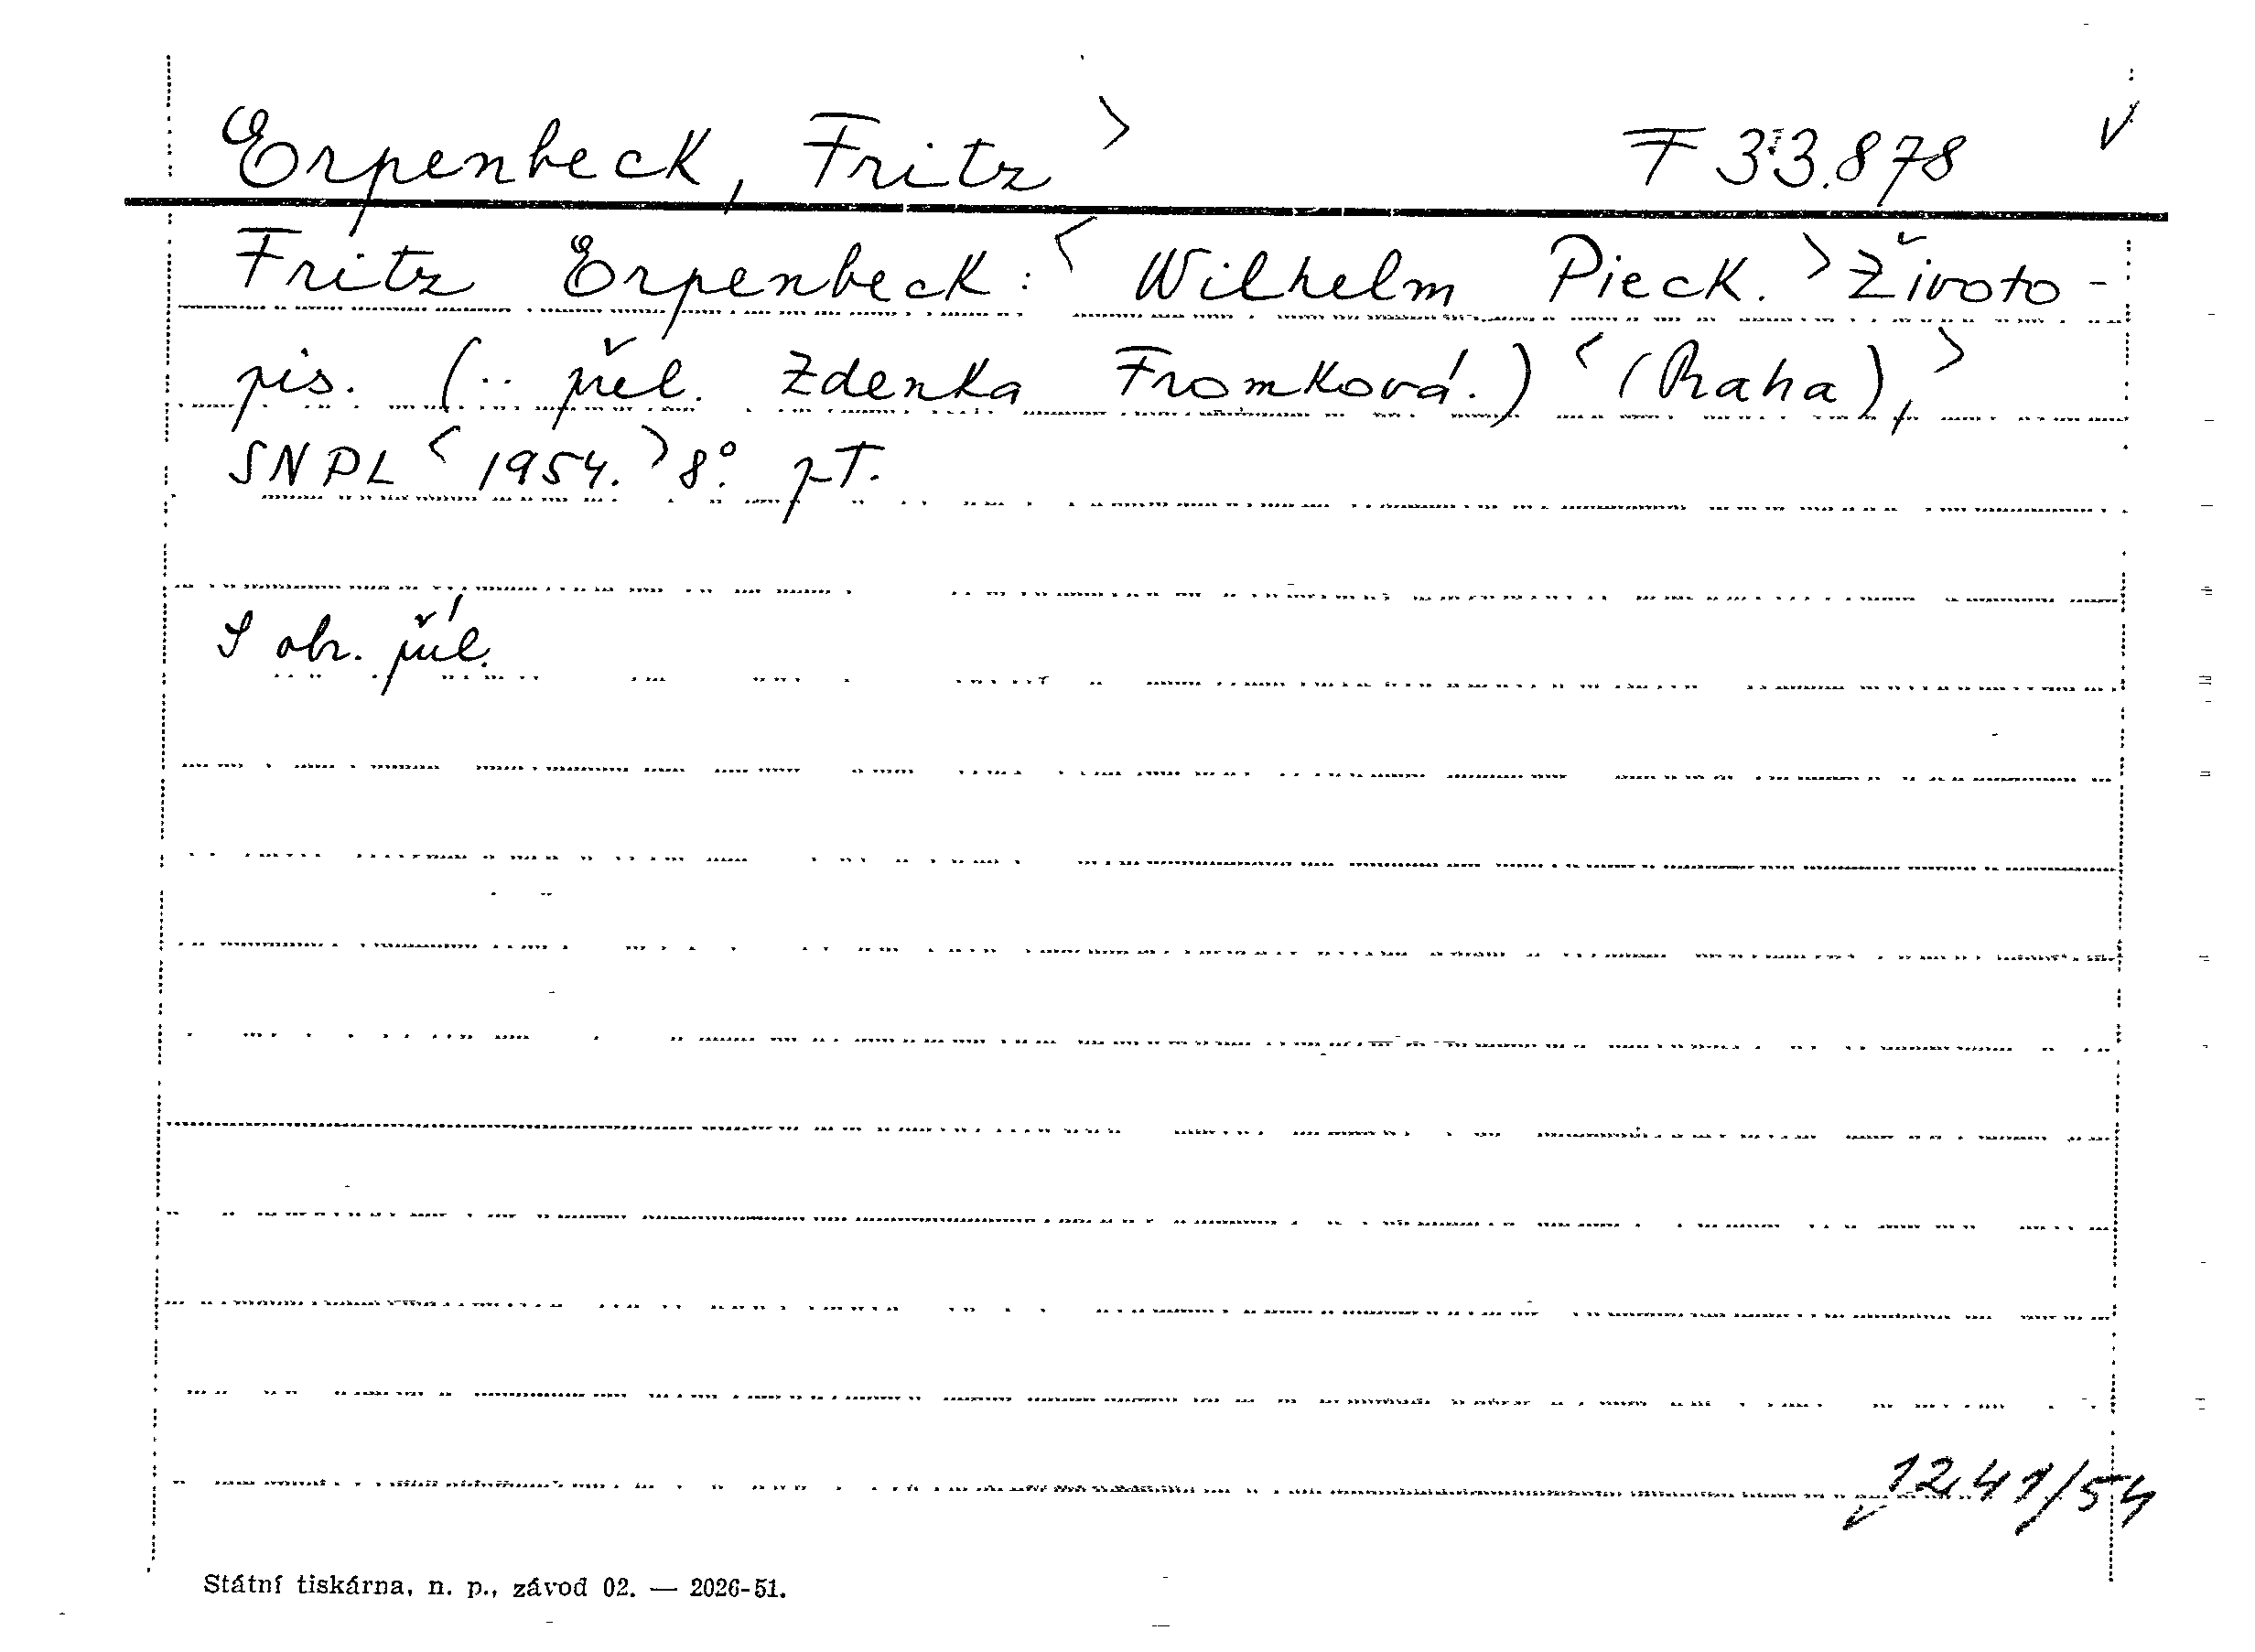 Erpenbeck, Fritz > F 33.878 √
Fritz Erpenbeck: < Wilhelm Pieck. > Životo-
pis. (.. přel. Zdenka Fromková.) < (Praha), >
SNPL < 1954. > 8°. pT.
S obr. příl.
1241/54
Státní tiskárna, n. p., závod 02. — 2026-51.